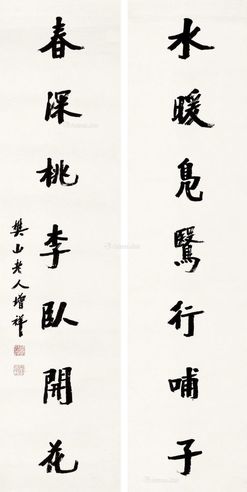 水暖凫鹥行哺子
春深桃李臥開花
樊山老人增祥